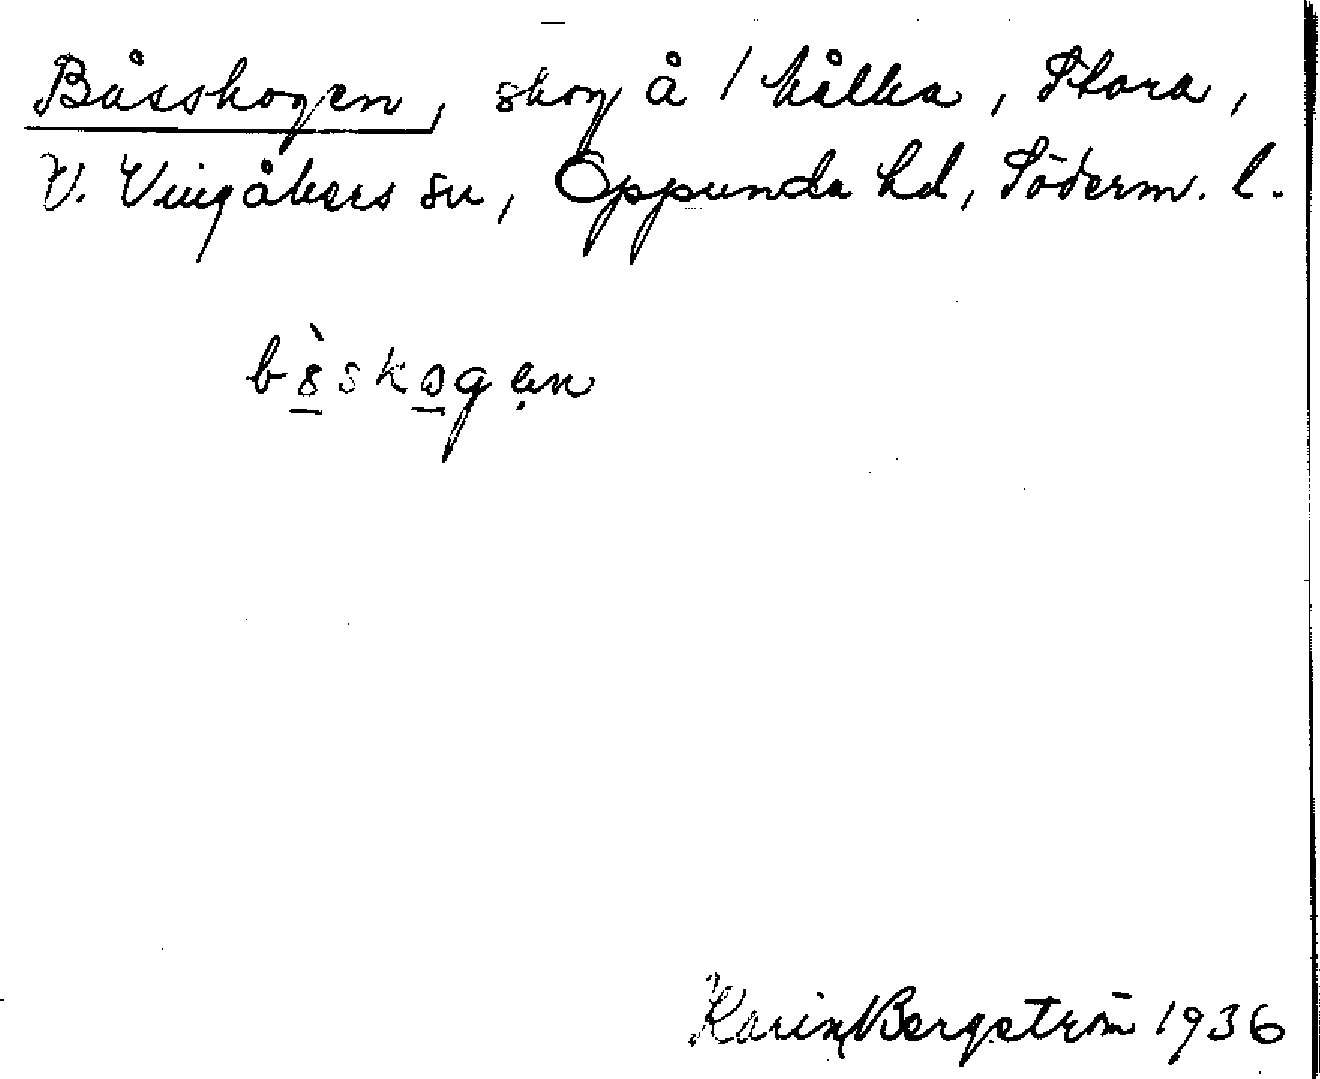 Båsskogen, skog å / Kålka, Stora,
V. Vingåkers sn, Oppunda hd, Söderm. l.
bòskogən
Karin Bergström 1936